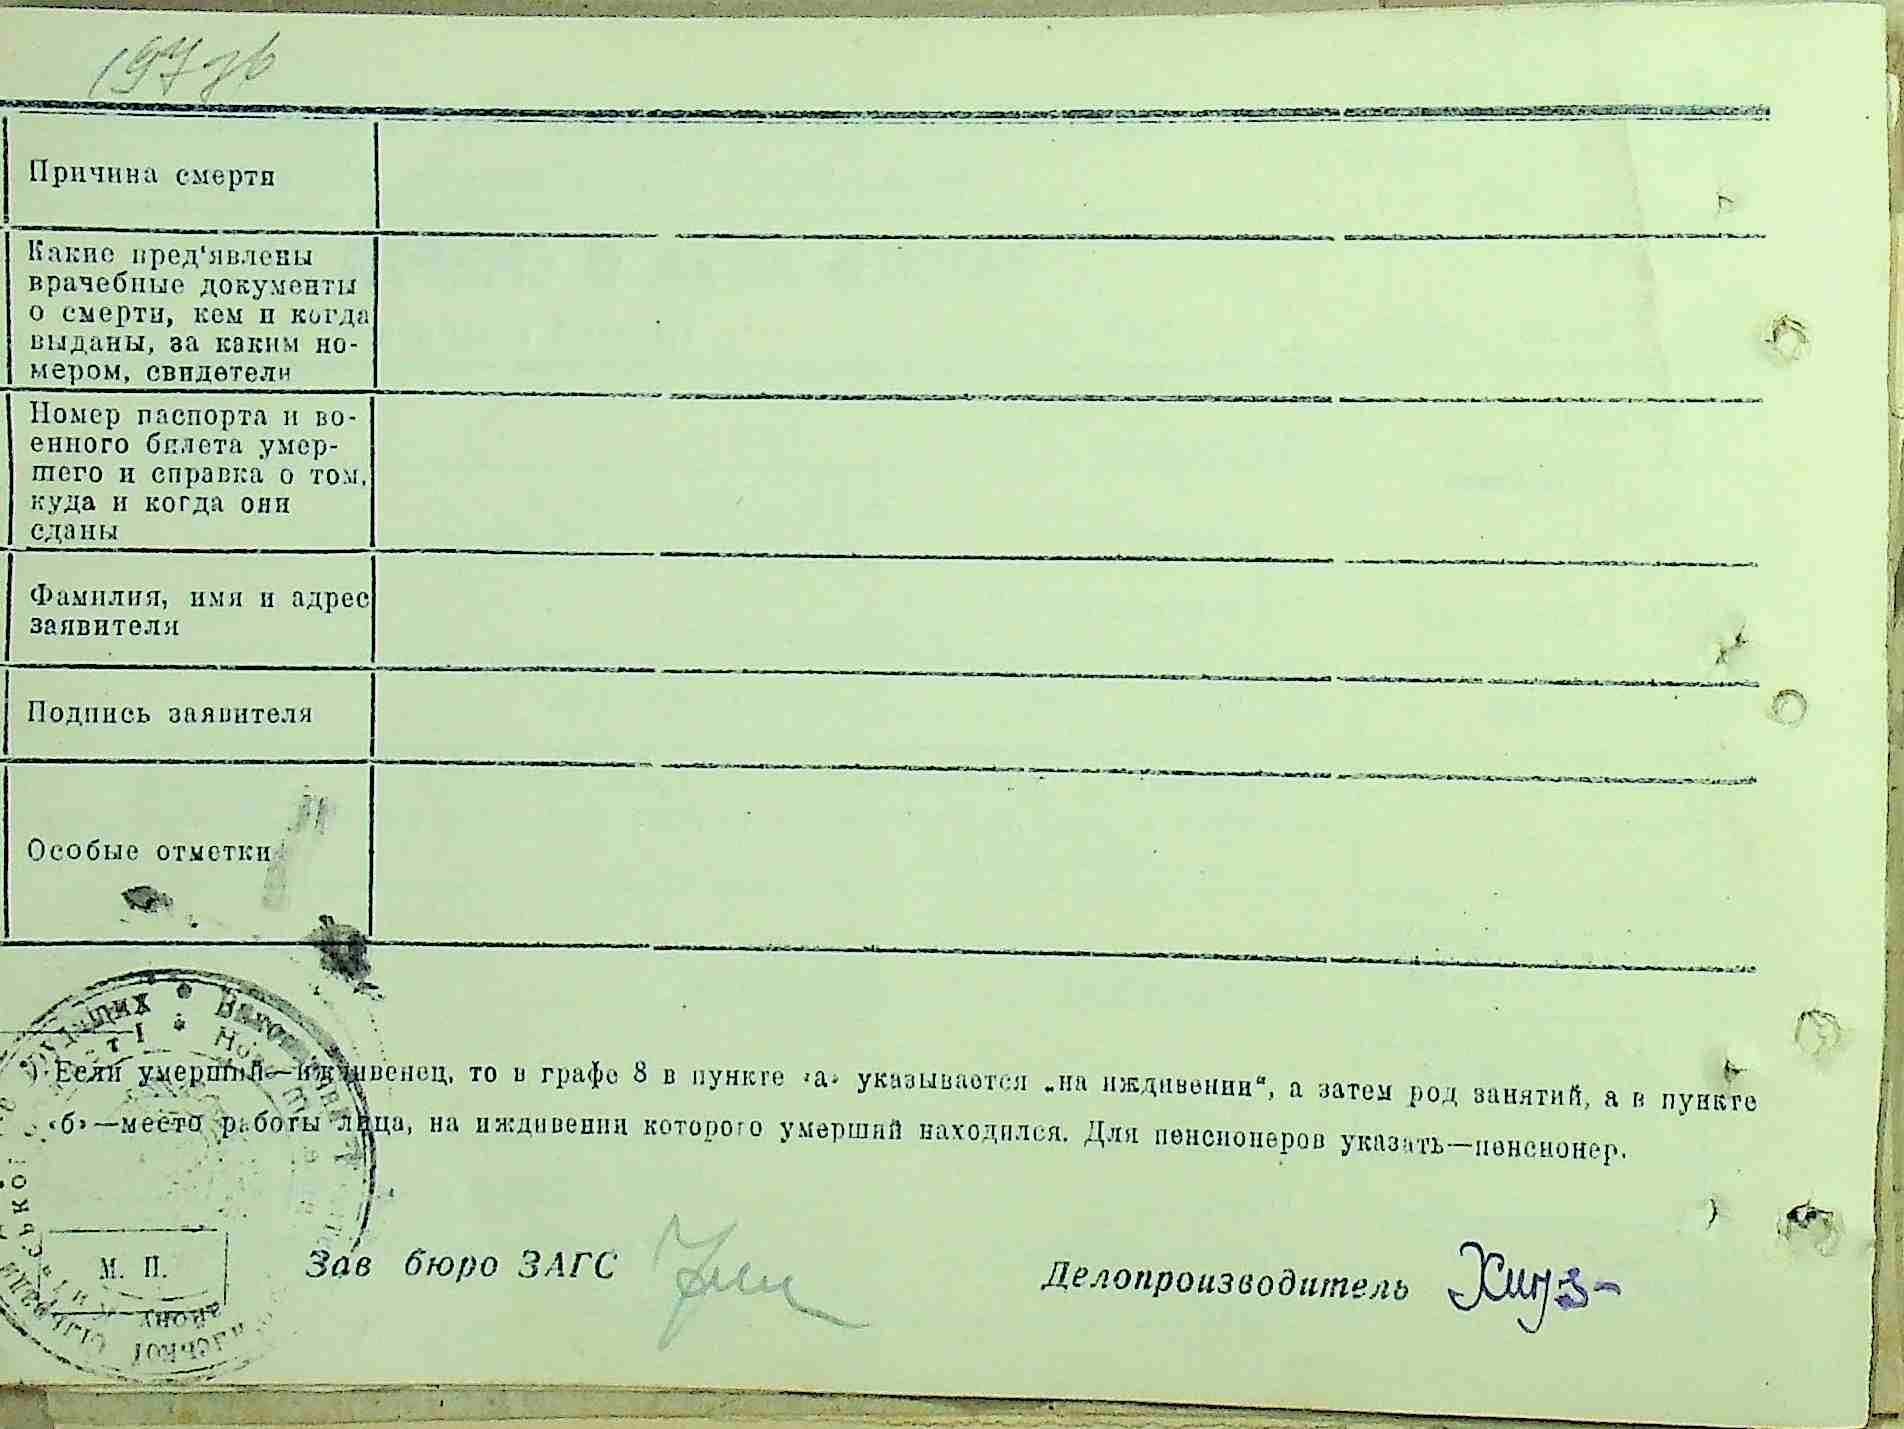 Причина смерти
Какие пред‘явлены
врачебные документы
о смерти, кем и когда
выданы, за каким но-
мером, свидетели
Номер паспорта и во-
енного билета умер-
шего и справка о том,
куда и когда они
сданы
Фамилия, имя и адрес
заявителя
Подпись заявителя
Особые отметки
*) Если умерший—иждивенец, то в графе 8 в пункте «а» указывается „на иждивении“, а затем род занятий, а в пункте
«б»—место работы лица, на иждивении которого умерший находился. Для пенсионеров указать—пенсионер.
М. П.
Зав бюро ЗАГС
Делопроизводитель